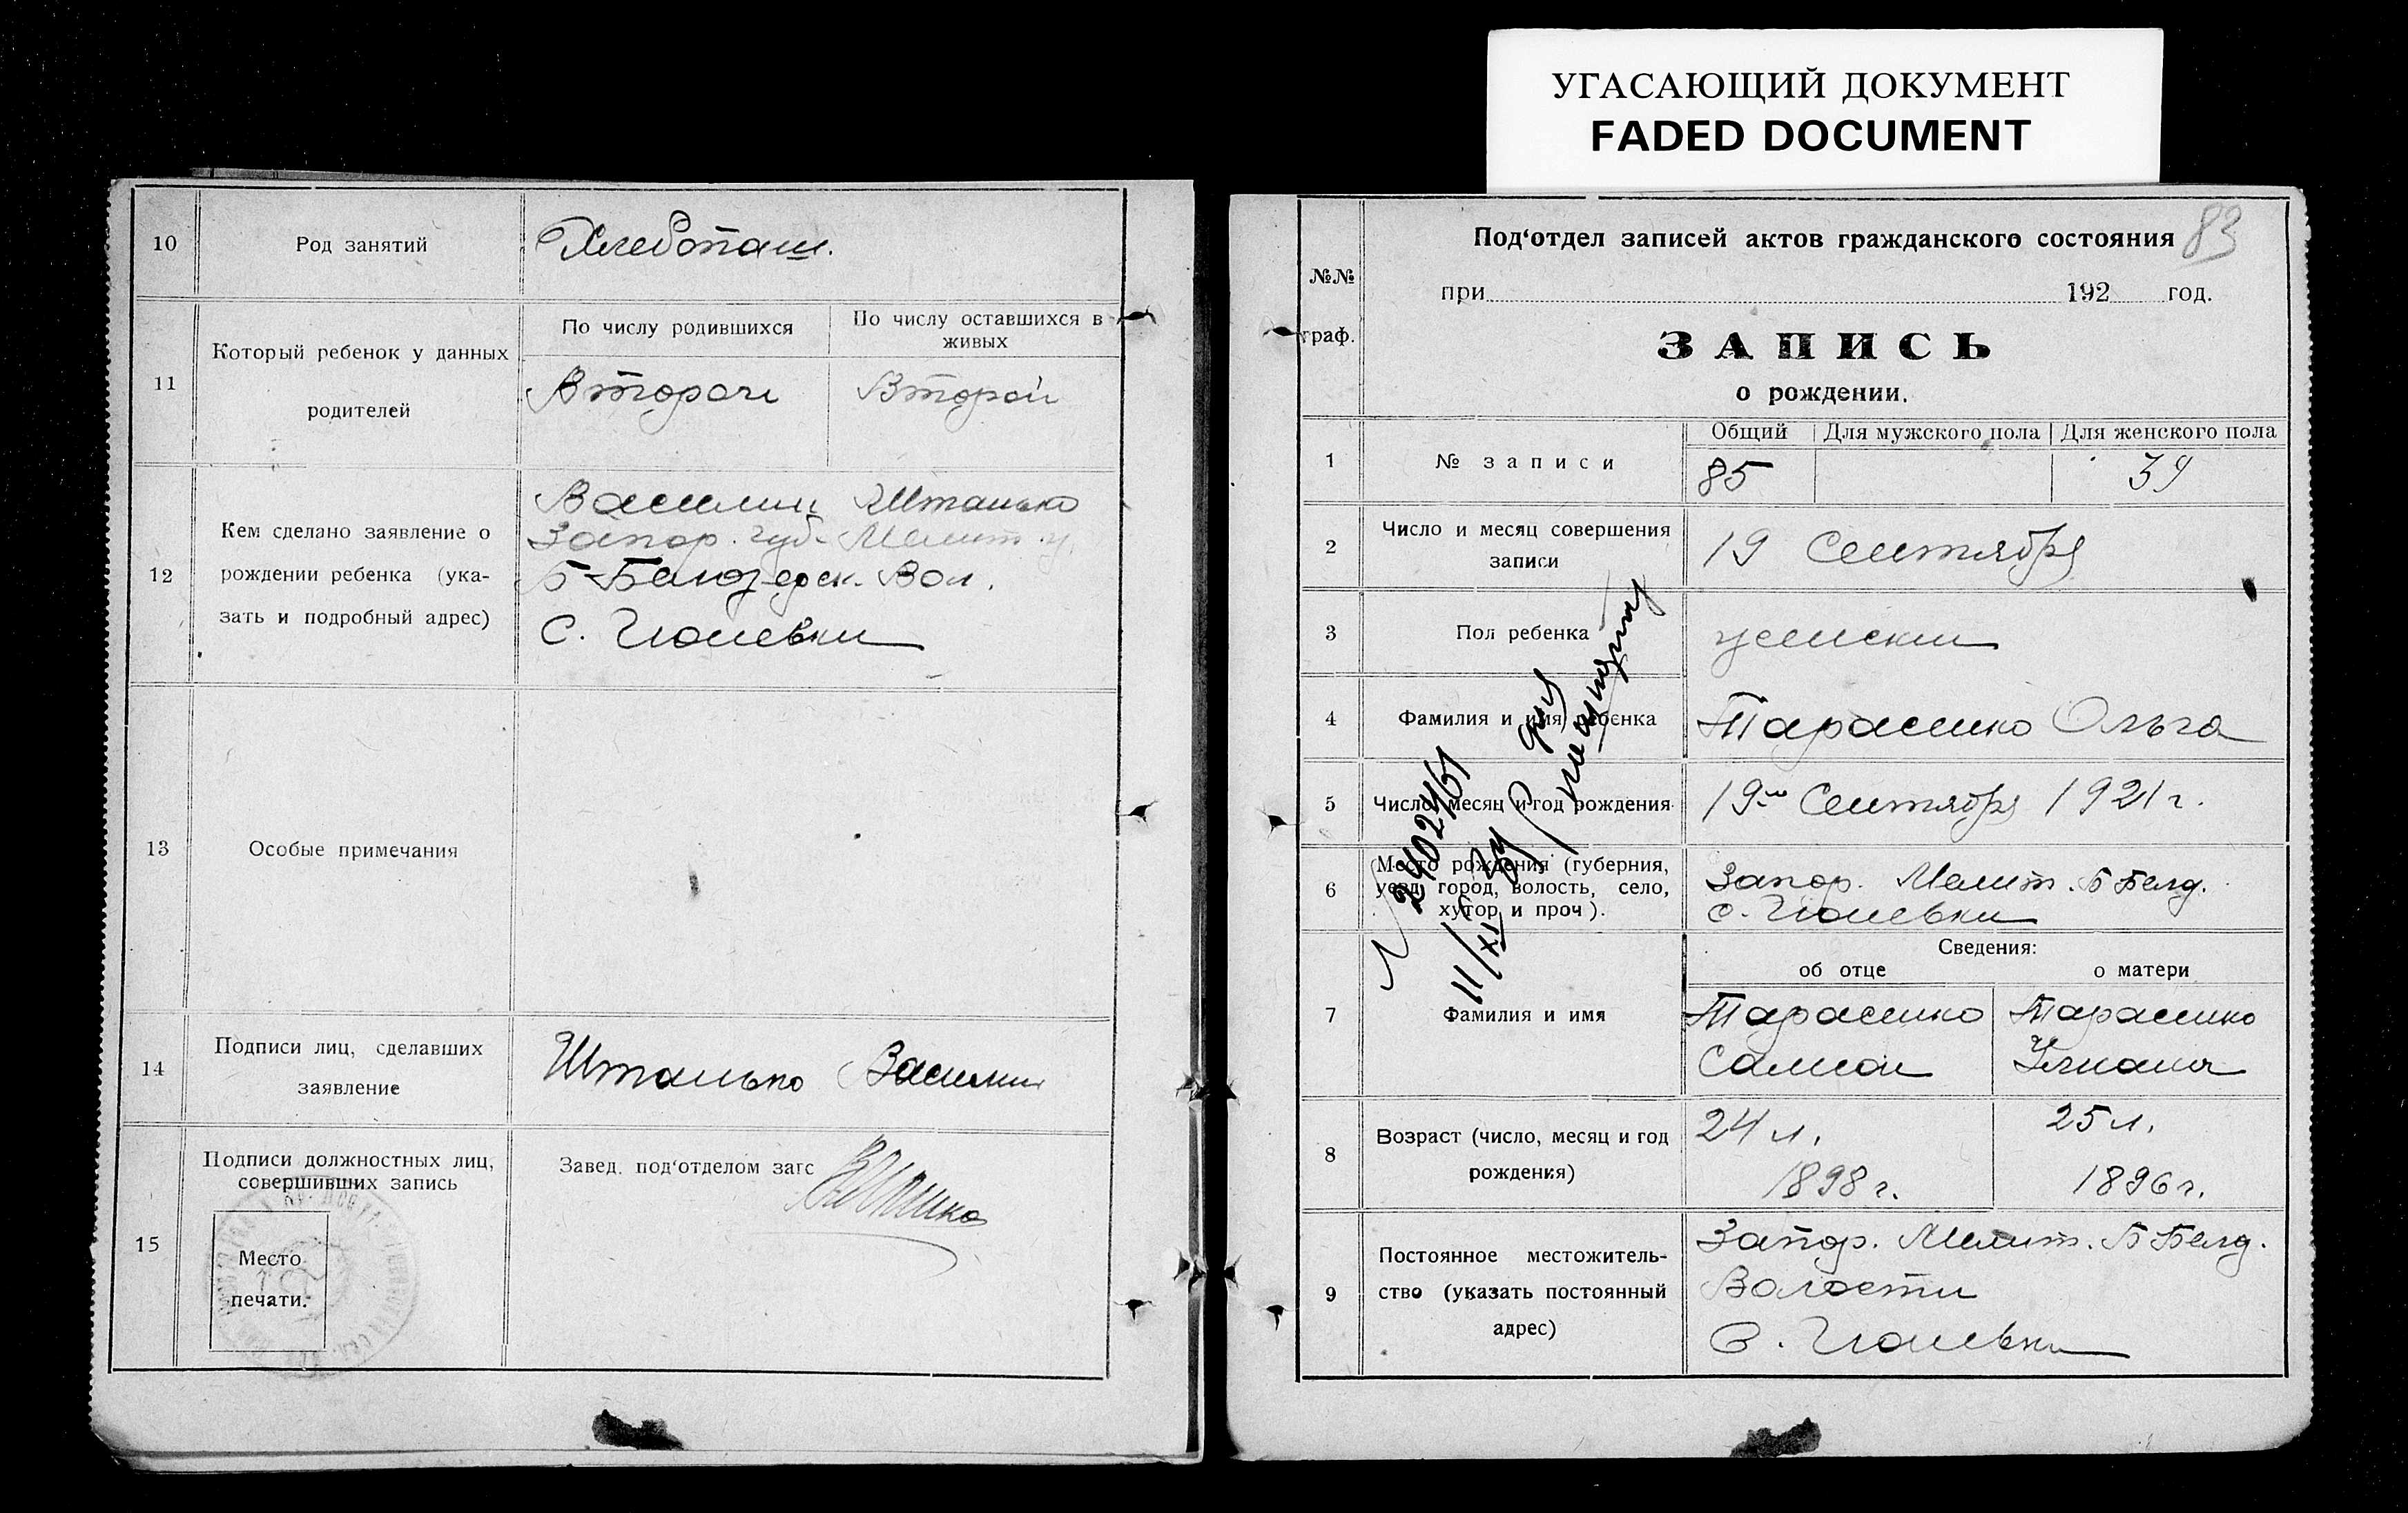 УГАСАЮЩИЙ ДОКУМЕНТ
FADED DOCUMENT
10
Род занятий
Хлебопаш.
11
Который ребенок у данных
родителей
По числу родившихся
Второй
По числу оставшихся в
живых
Второй
12
Кем сделано заявление о
рождении ребенка (ука-
зать и подробный адрес)
Василий Штанько
Запор. губ. Мелит. у.
Б-Белозерск. Вол.
С. Гюневки
13
Особые примечания
14
Подписи лиц, сделавших
заявление
Штанько Василий
15
Подписи должностных лиц,
совершивших запись
Место
печати.
Завед. под‘отделом загс
83
№№
граф.
Под‘отдел записей актов гражданского состояния
при 192 год.
ЗАПИСЬ
о рождении.
1
№ записи
Общий
Для мужского пола
Для женского пола
85
39
2
Число и месяц совершения
записи
19 Сентября
3
Пол ребенка
женский
4
Фамилия и имя ребенка
Тарасенко Ольга
5
Число, месяц и год рождения
19го Сентября 1921 г.
6
Место рождения (губерния,
уезд, город, волость, село,
хутор и проч).
Запор. Мелит. Б Белоз.
с. Гюневки
Сведения:
об отце
о матери
7
Фамилия и имя
Тарасенко
Самсон
Тарасенко
Ульяна
8
Возраст (число, месяц и год
рождения)
24 л.
1898 г.
25 л.
1896 г.
9
Постоянное местожитель-
ство (указать постоянный
адрес)
Запор. Мелит. Б Белоз.
Волости
С. Гюневки